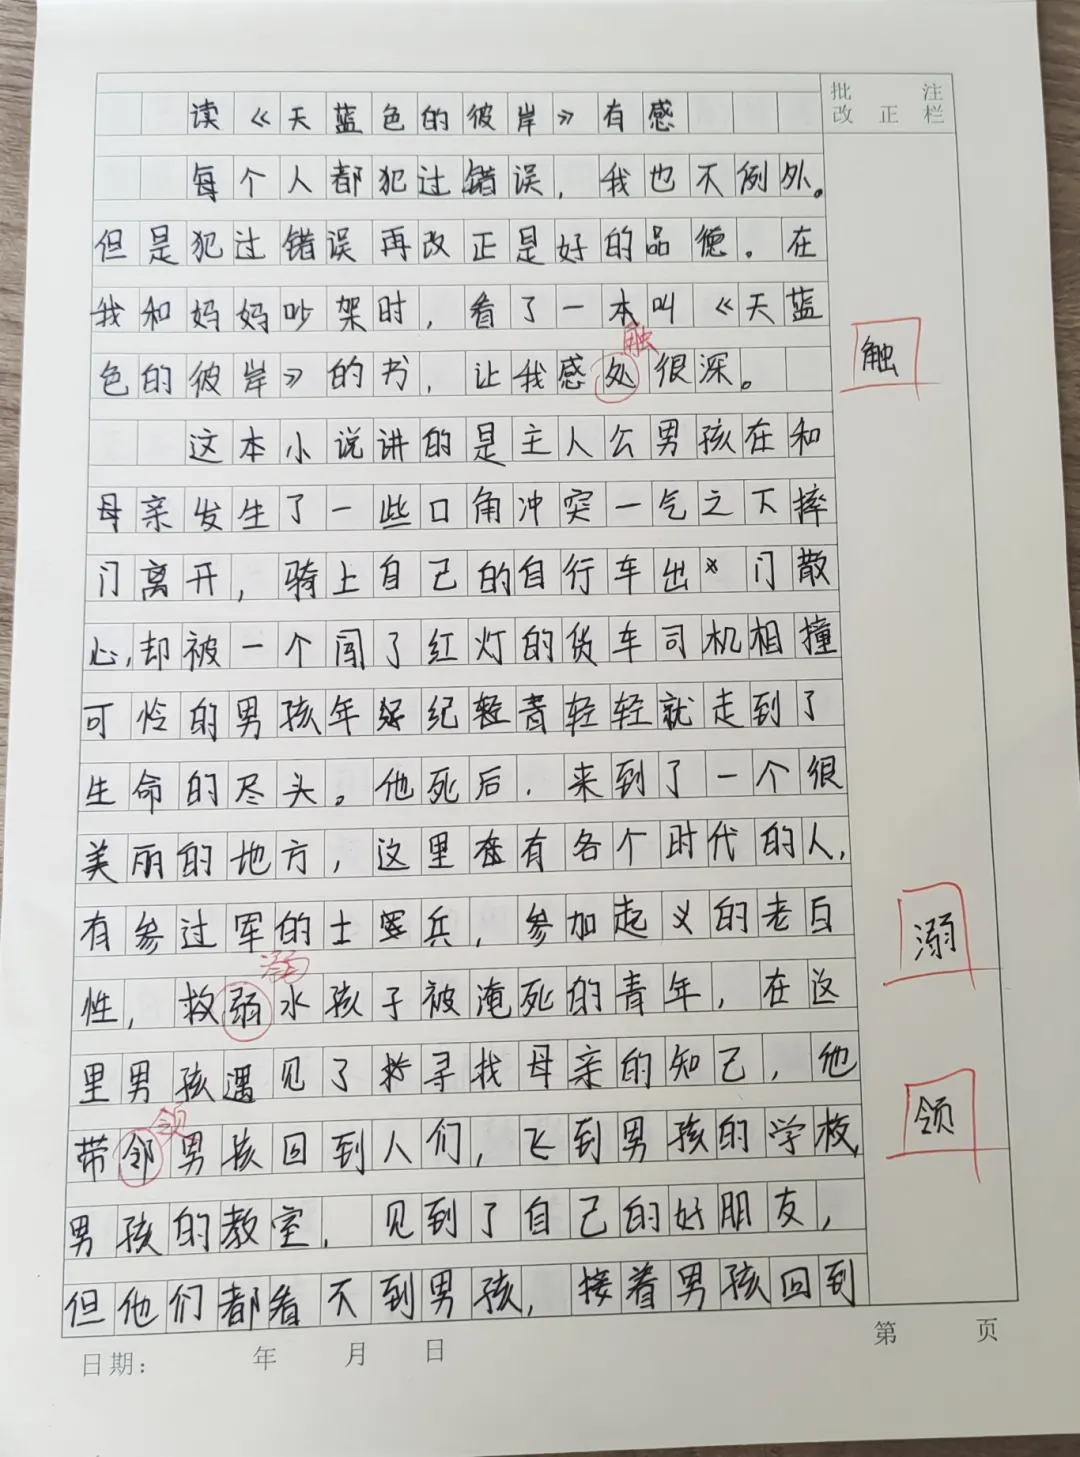 批 注
改 正 栏
读《天蓝色的彼岸》有感
每个人都犯过错误，我也不例外。
但是犯过错误再改正是好的品德。在
我和妈妈吵架时，看了一本叫《天蓝
触
色的彼岸》的书，让我感处很深。
触
这本小说讲的是主人公男孩在和
母亲发生了一些口角冲突一气之下摔
门离开，骑上自己的自行车出门散
心，却被一个闯了红灯的货车司机相撞
可怜的男孩年纪轻轻就走到了
生命的尽头。他死后，来到了一个很
美丽的地方，这里有各个时代的人，
有参过军的士兵，参加起义的老百
溺
溺
性，救弱水孩子被淹死的青年，在这
里男孩遇见了寻找母亲的知己，他
领
领
带邻男孩回到人们，飞到男孩的学校，
男孩的教室，见到了自己的好朋友，
但他们都看不到男孩，接着男孩回到
日期： 年 月 日
第 页